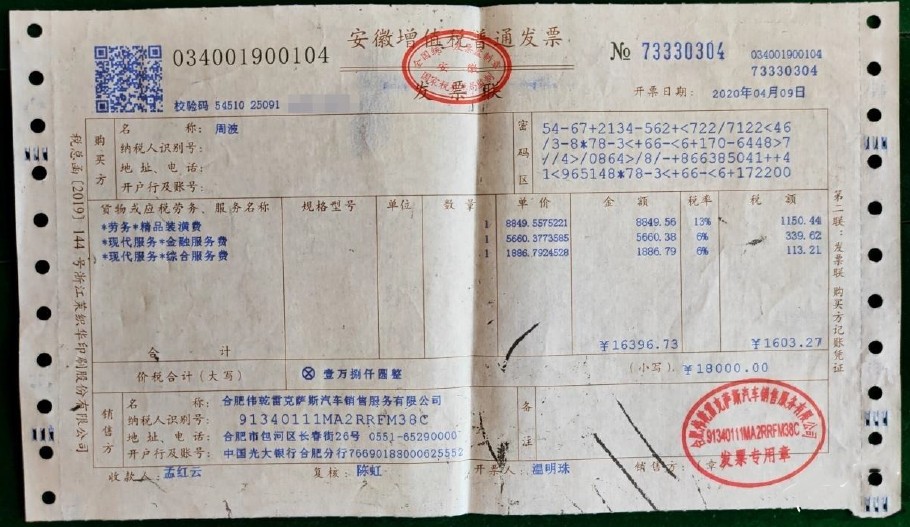 034001900104
安徽增值税普通发票
发票联
№ 73330304
034001900104
73330304
校验码 54510 25091
开票日期: 2020年04月09日
购买方
名 称: 周波
纳税人识别号:
地 址、电 话:
开户行及账号:
密码区
54-67+2134-562+<722/7122<46
/3-8*78-3<+66-<6+170-6448>7
//4>/0864>/8/-+866385041++4
1<965148*78-3<+66-<6+172200
货物或应税劳务、服务名称 规格型号 单位 数量 单价 金额 税率 税额
*劳务*精品装潢费 1 8849.5575221 8849.56 13% 1150.44
*现代服务*金融服务费 1 5660.3773585 5660.38 6% 339.62
*现代服务*综合服务费 1 1886.7924528 1886.79 6% 113.21
合 计 ¥16396.73 ¥1603.27
价税合计(大写) ⊗壹万捌仟圆整 (小写) ¥18000.00
销售方
名 称: 合肥伟乾雷克萨斯汽车销售服务有限公司
纳税人识别号: 91340111MA2RRFM38C
地 址、电 话: 合肥市包河区长春街26号 0551-65290000
开户行及账号: 中国光大银行合肥分行76690188000625552
备注
收款人: 孟红云 复核: 陈虹 开票人: 温明珠 销售方:(章)
合肥伟乾雷克萨斯汽车销售服务有限公司
91340111MA2RRFM38C
发票专用章
税总函〔2019〕144号浙江茉织华印刷股份有限公司
第二联:发票联 购买方记账凭证